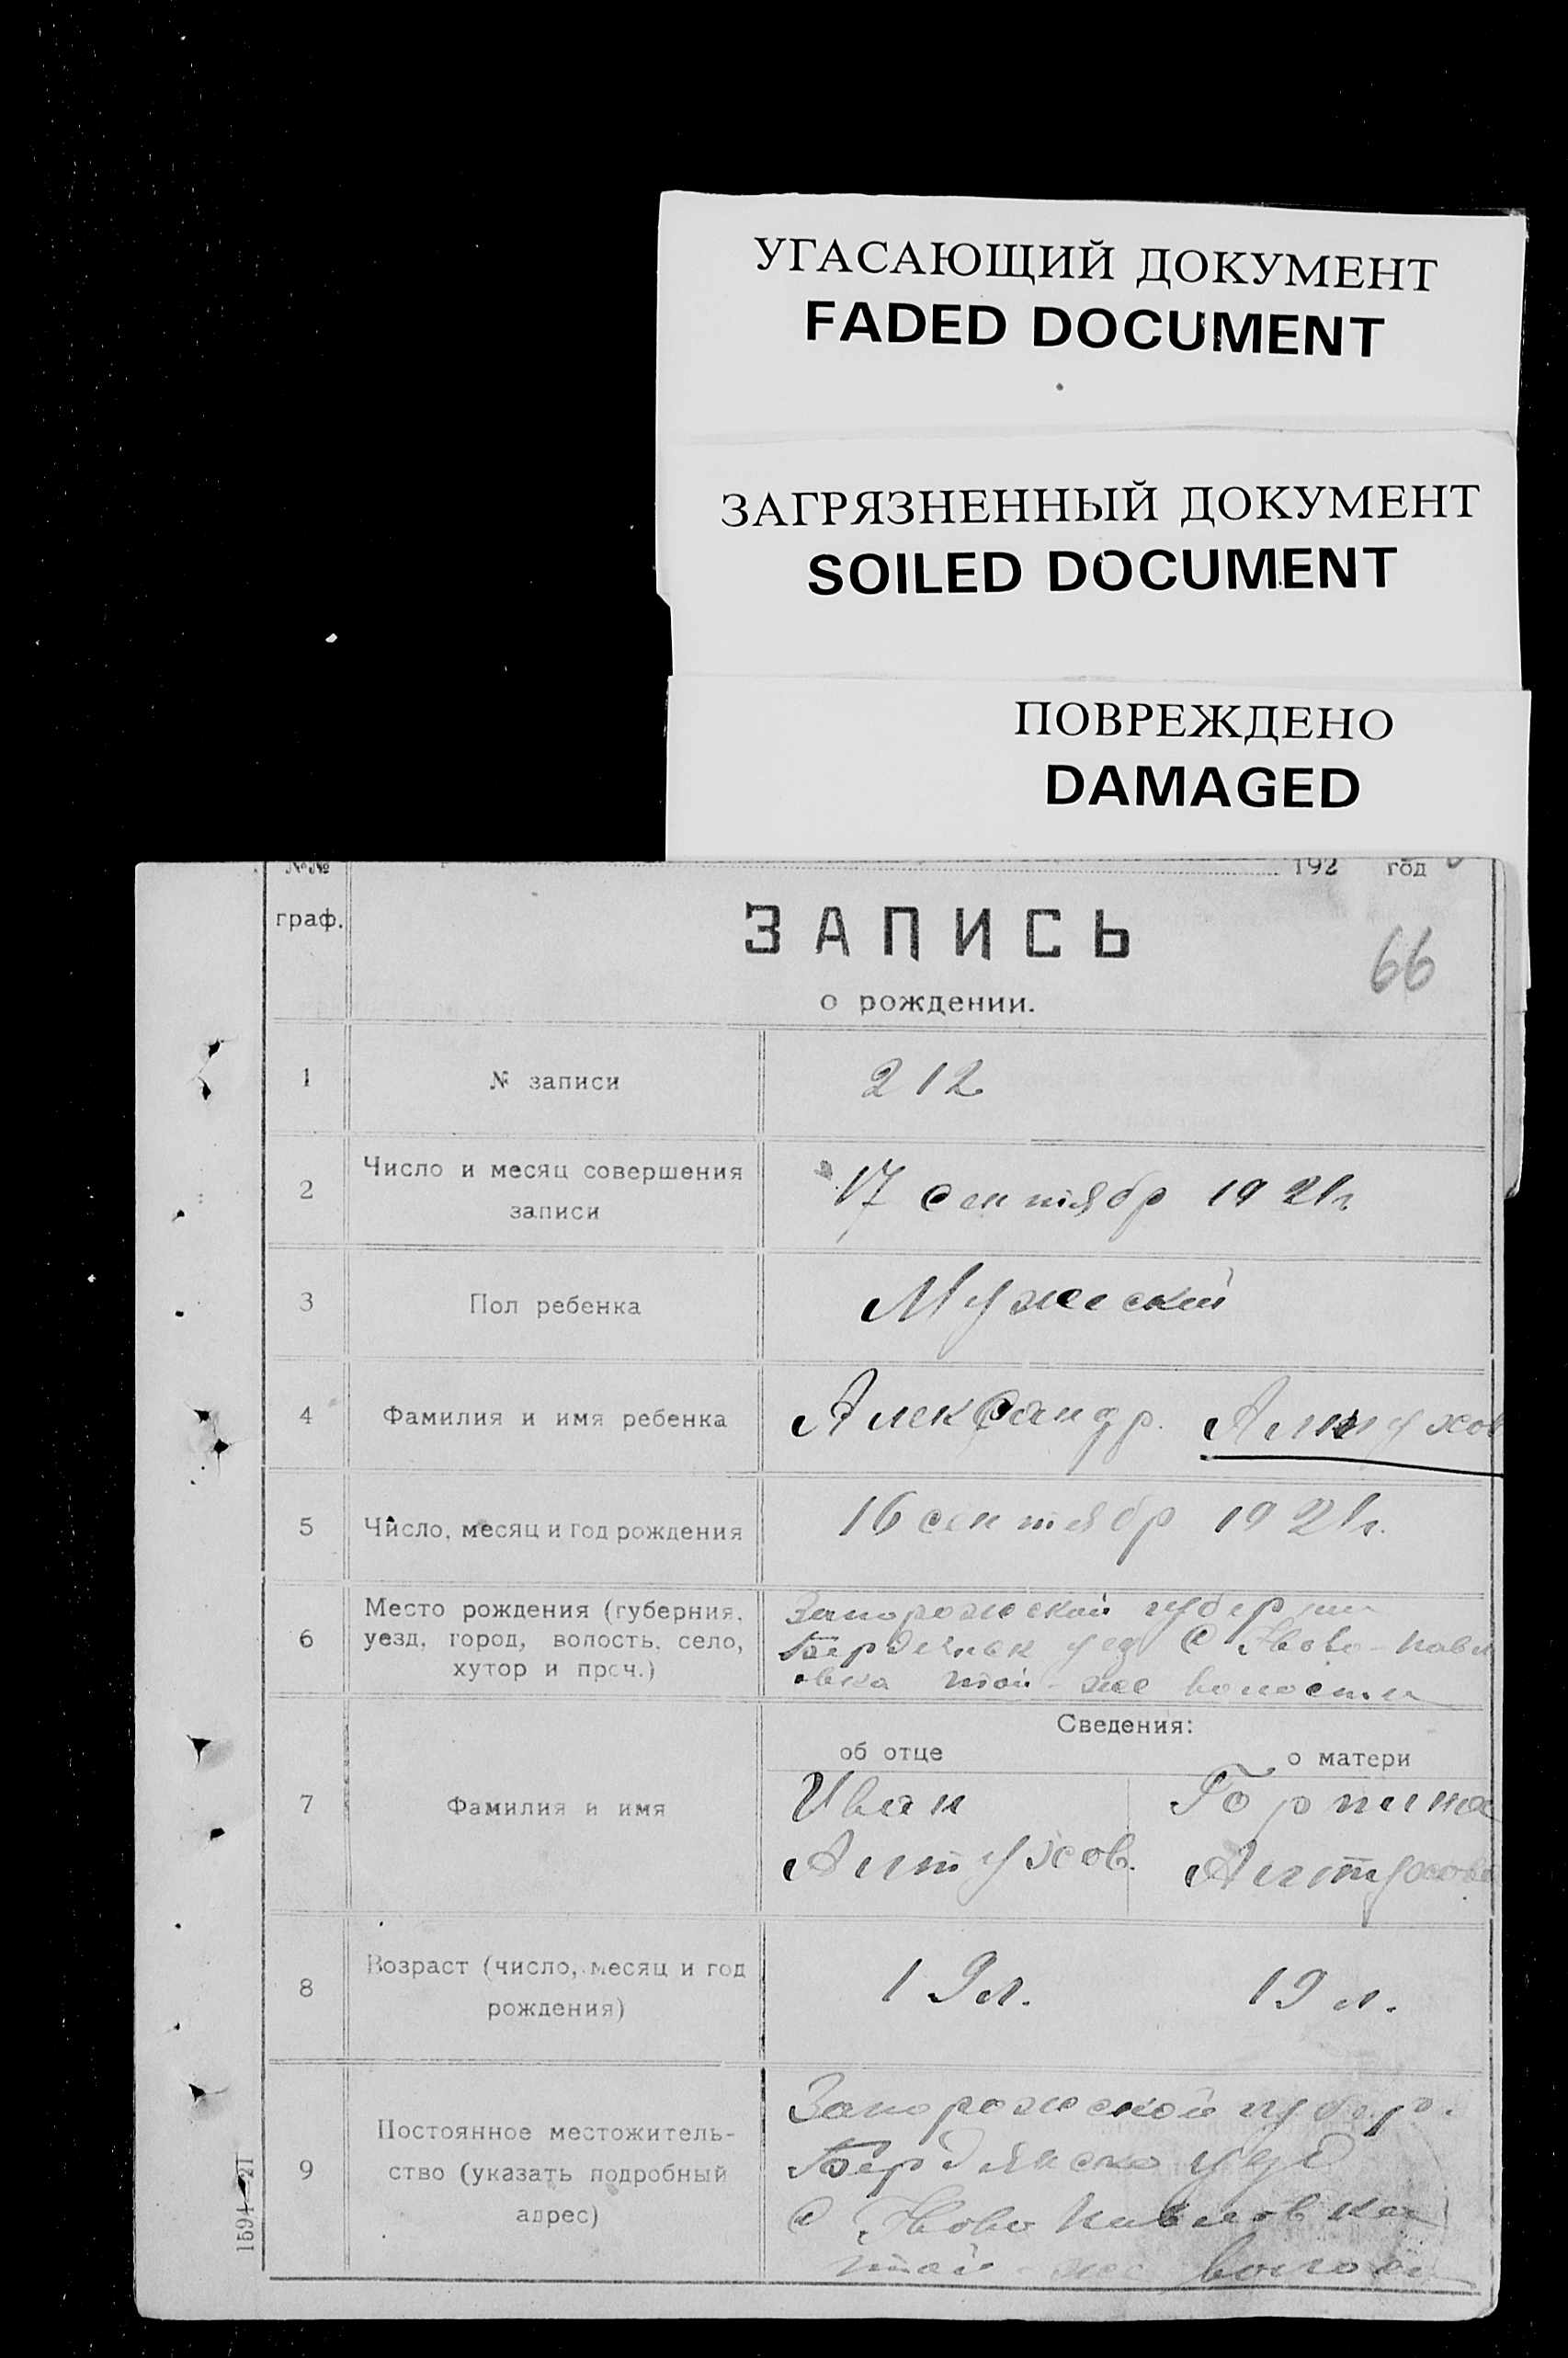 УГАСАЮЩИЙ ДОКУМЕНТ
FADED DOCUMENT
ЗАГРЯЗНЕННЫЙ ДОКУМЕНТ
SOILED DOCUMENT
ПОВРЕЖДЕНО
DAMAGED
№№ 192 год
граф.
ЗАПИСЬ
66
о рождении.
1 № записи 212
2 Число и месяц совершения записи 17 сентябр 1921г
3 Пол ребенка Мужеский
4 Фамилия и имя ребенка Александр.
5 Число, месяц и год рождения 16 сентябр 1921г.
6 Место рождения (губерния,
уезд, город, волость, село,
хутор и проч.)
Запорожской губерни
Бердянск уез С Ново-Павл
овка той-же волости
Сведения:
об отце о матери
7 Фамилия и имя
Иван Горпина
Алтухов. Алтухова
8 Возраст (число, месяц и год
рождения)
19л. 19л.
9 Постоянное местожитель-
ство (указать подробный
адрес)
Запорожской губер.
Бердянско уезд
С Ново Павловка
той-же
1594—21